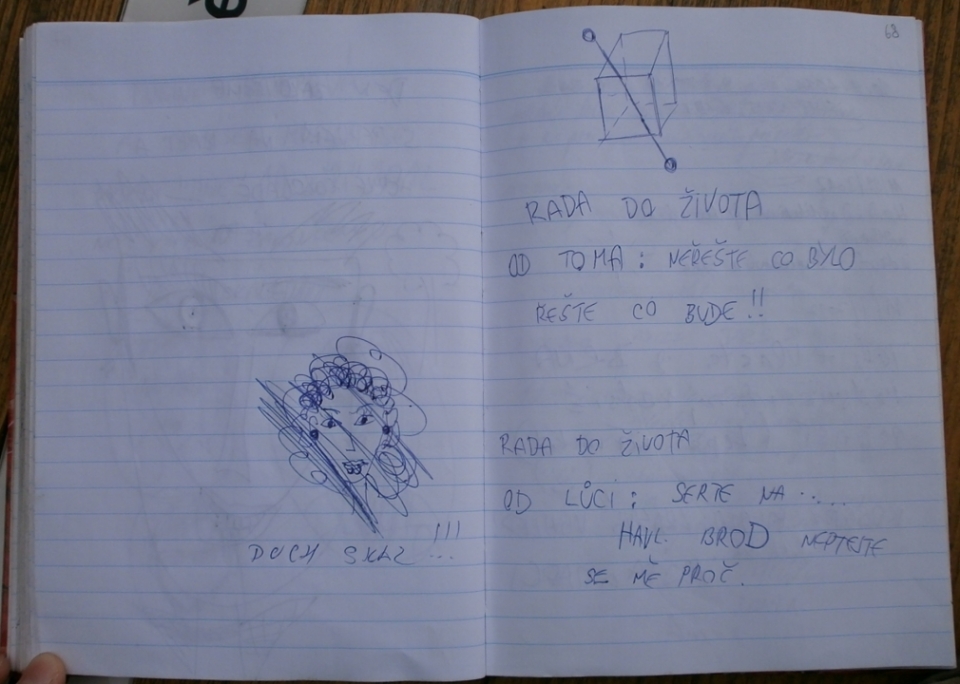 DUCH SKAL !!!
68
RADA DO ŽIVOTA
OD TOMA : NEŘEŠTE CO BYLO
ŘEŠTE CO BUDE !!
RADA DO ŽIVOTA
OD LŮCI : SERTE NA .....
HAVL. BROD NEPTEJTE
SE MĚ PROČ.